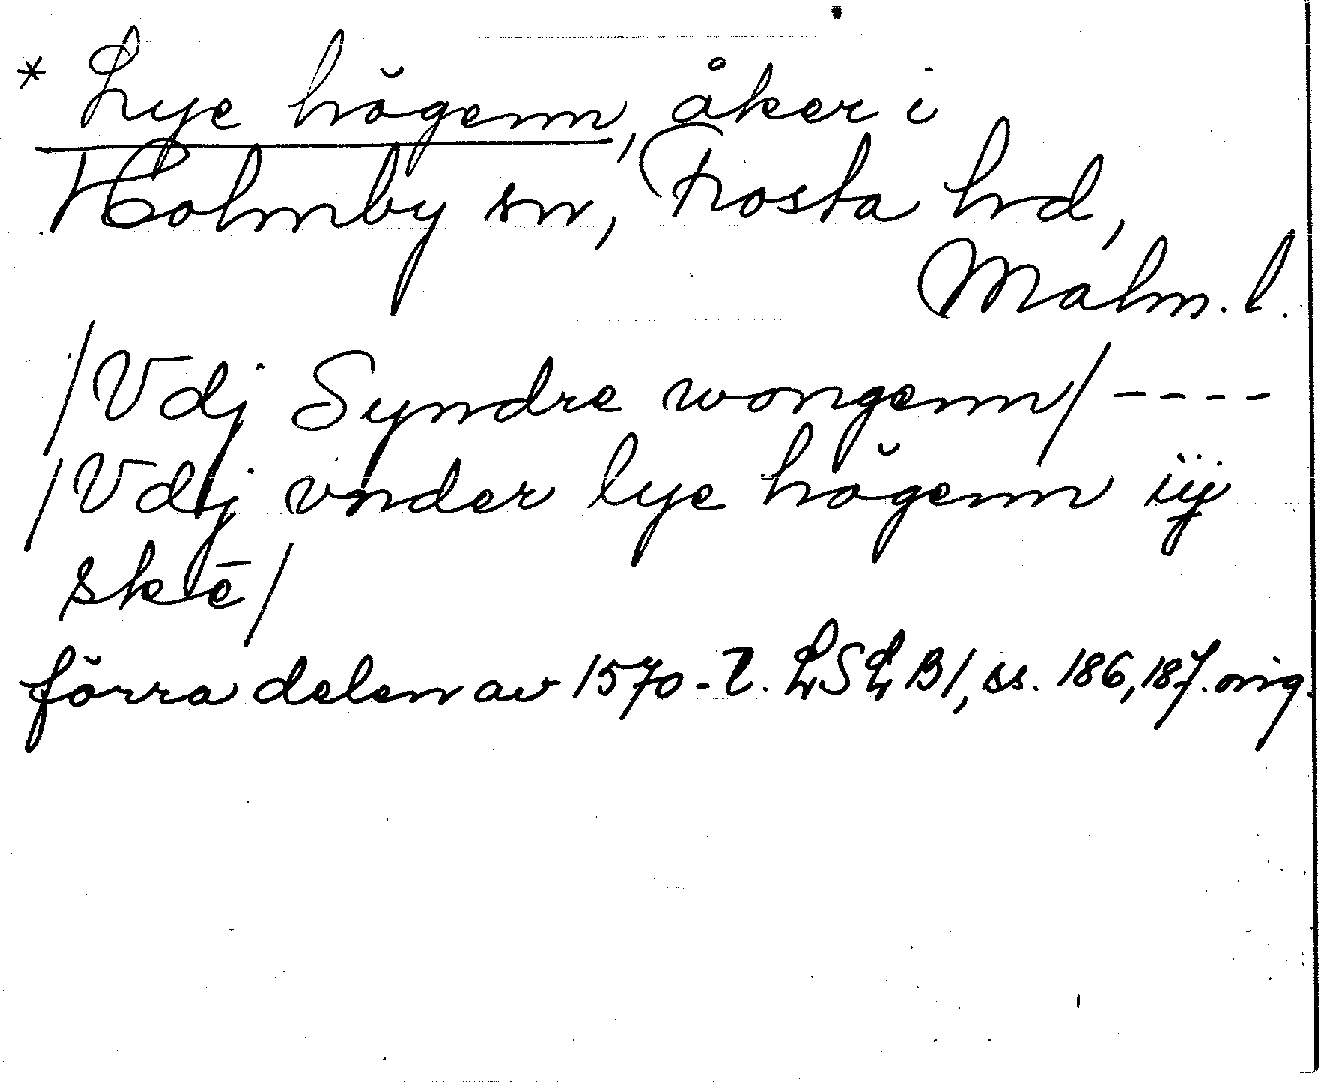 * Lye högenn, åker i
Holmby sn, Frosta hd,
Malm. l.
/Vdj Syndre wongenn/ ----
/Vdj vnder lye högenn iij
sktē/
förra delen av 1570-t. LSLB1, ss. 186, 187. orig.